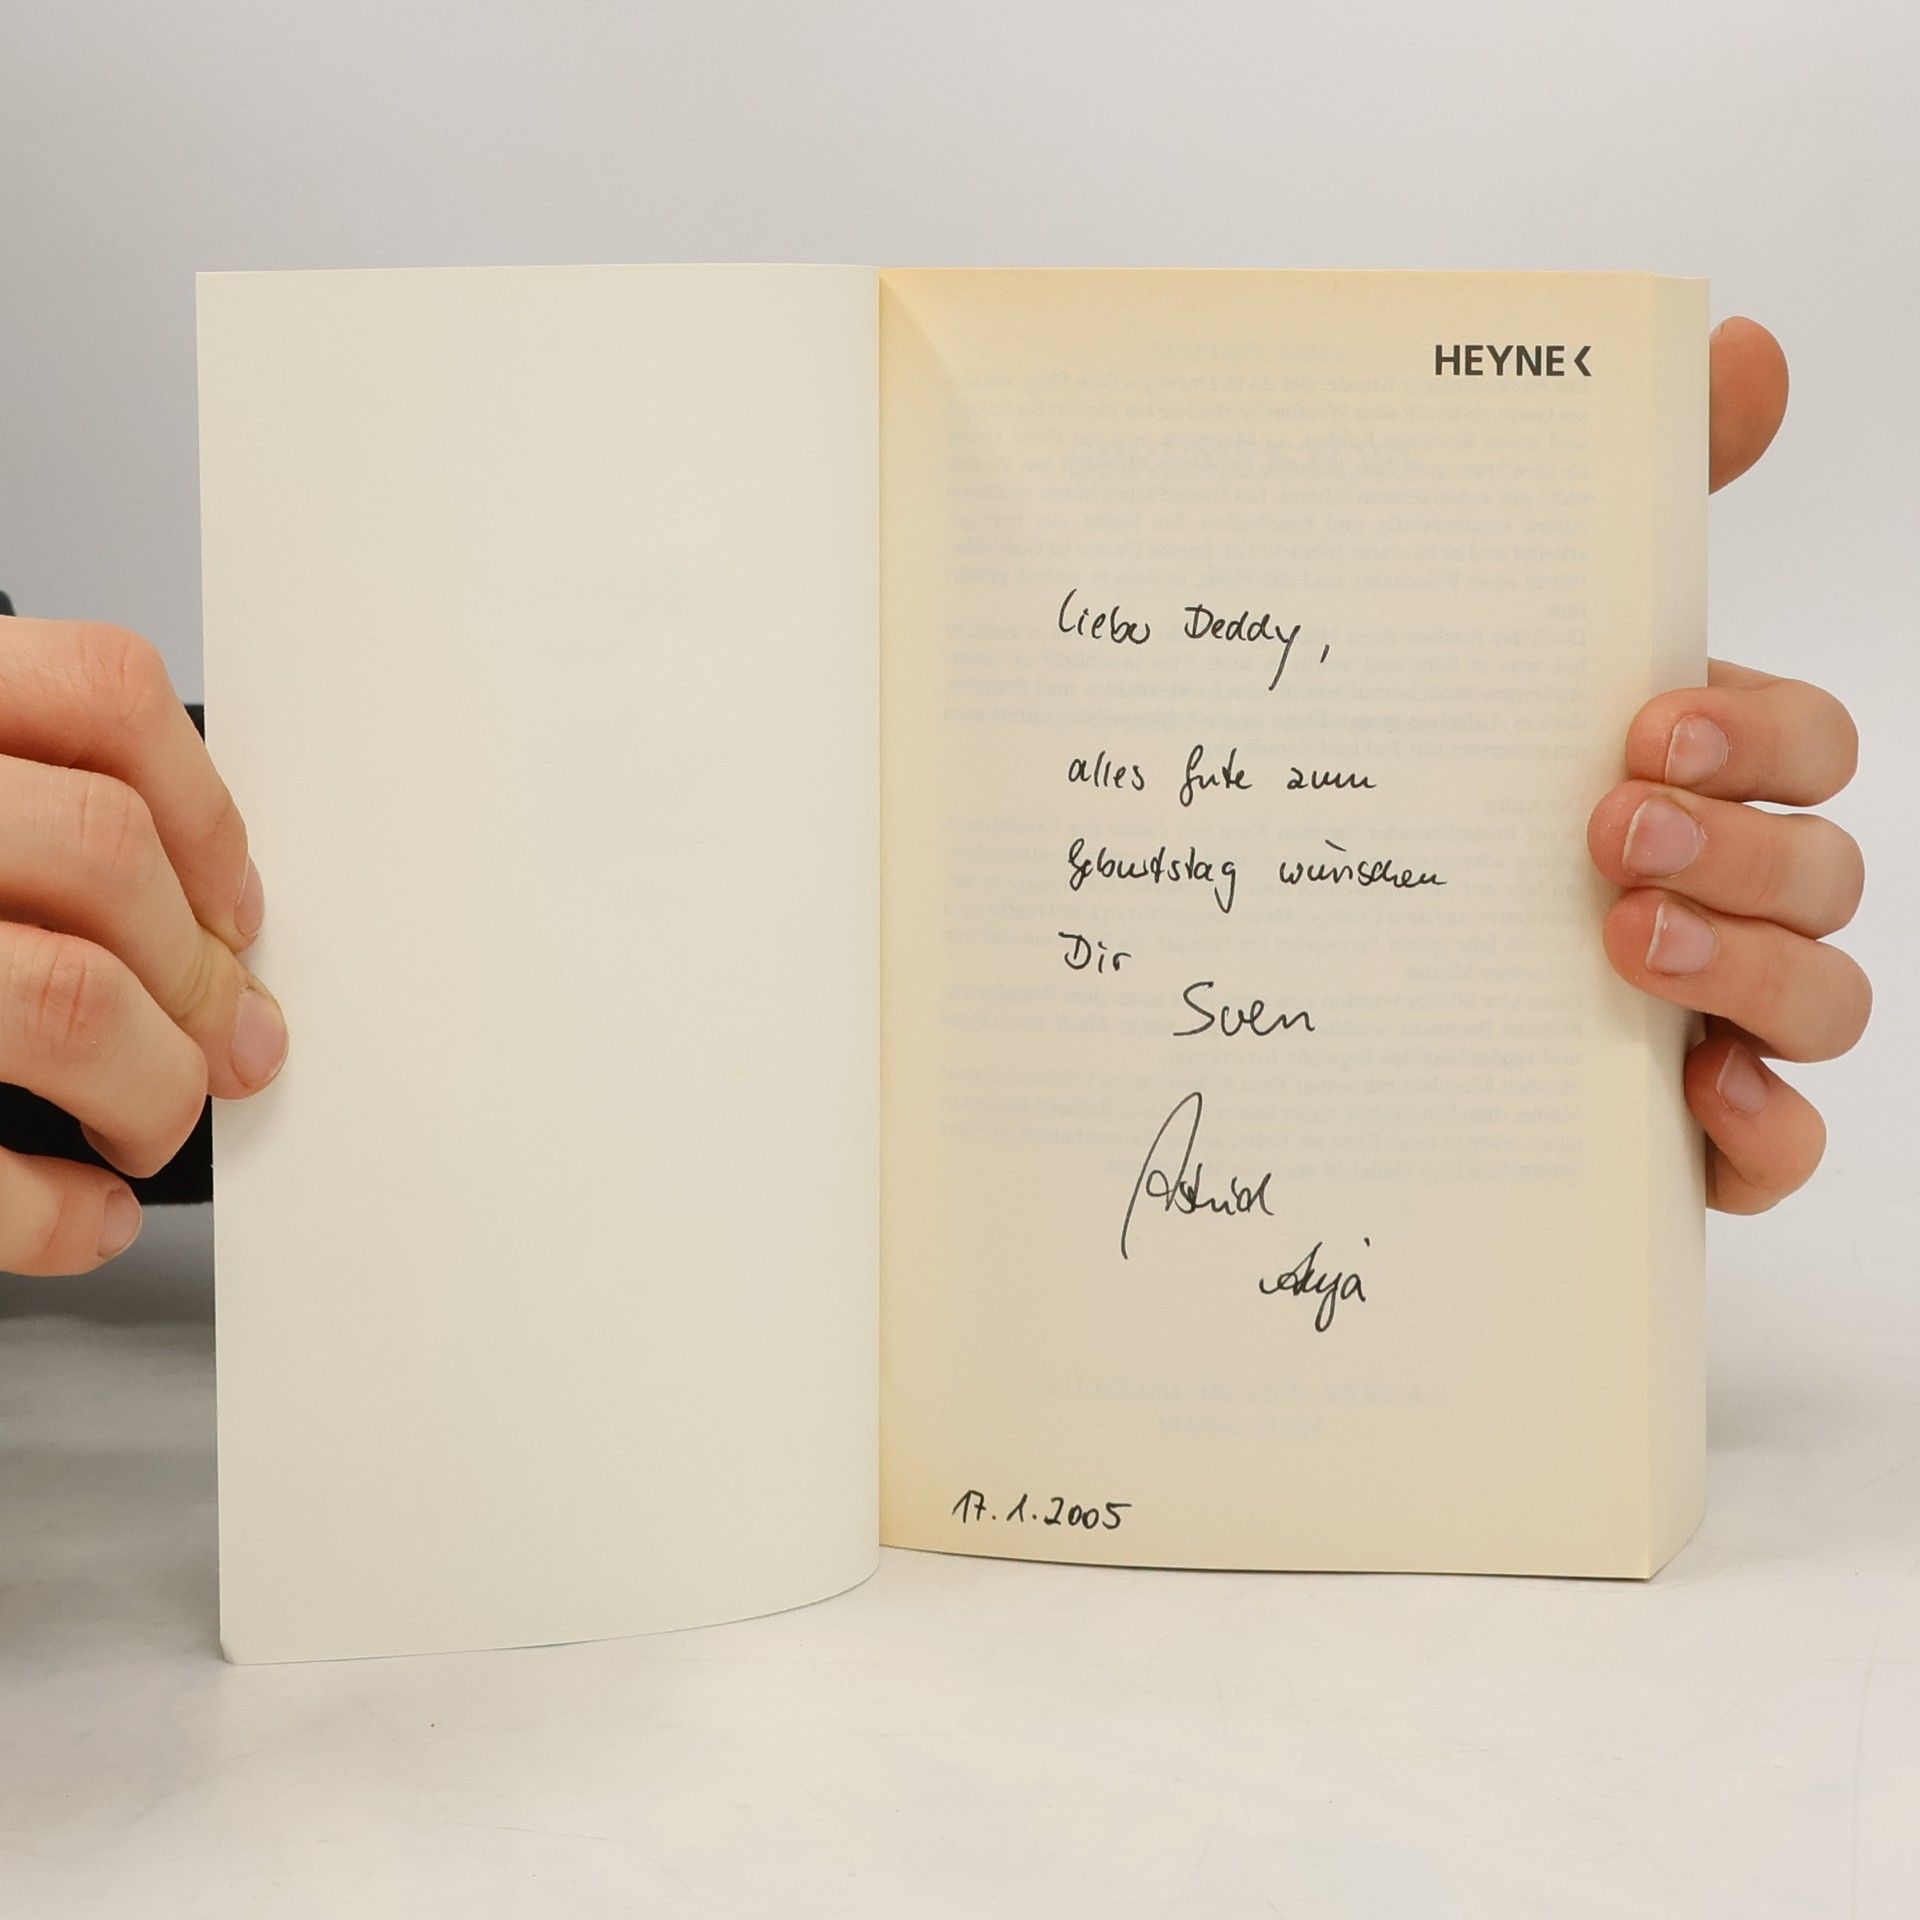 HEYNE<
Lieber Deddy,
alles Gute zum
Geburtstag wünschen
Dir
Sven
Astrid
Anja
17.1.2005